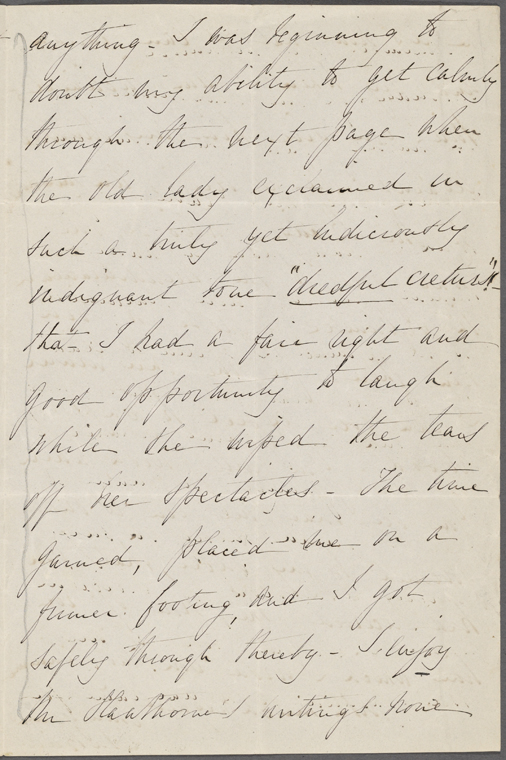 anything - I was beginning to
doubt my ability to get calmly
through the next page when
the old lady exclaimed in
such a truly yet ludicrously
indignant tone "dredful cretur" -
that I had a fair right and
good opportunity to laugh
while she wiped the tears
off her spectacles - The time
gained, placed me on a
firmer footing, and I got
safely through thereby - I enjoy
Mr Hawthorne's writings more